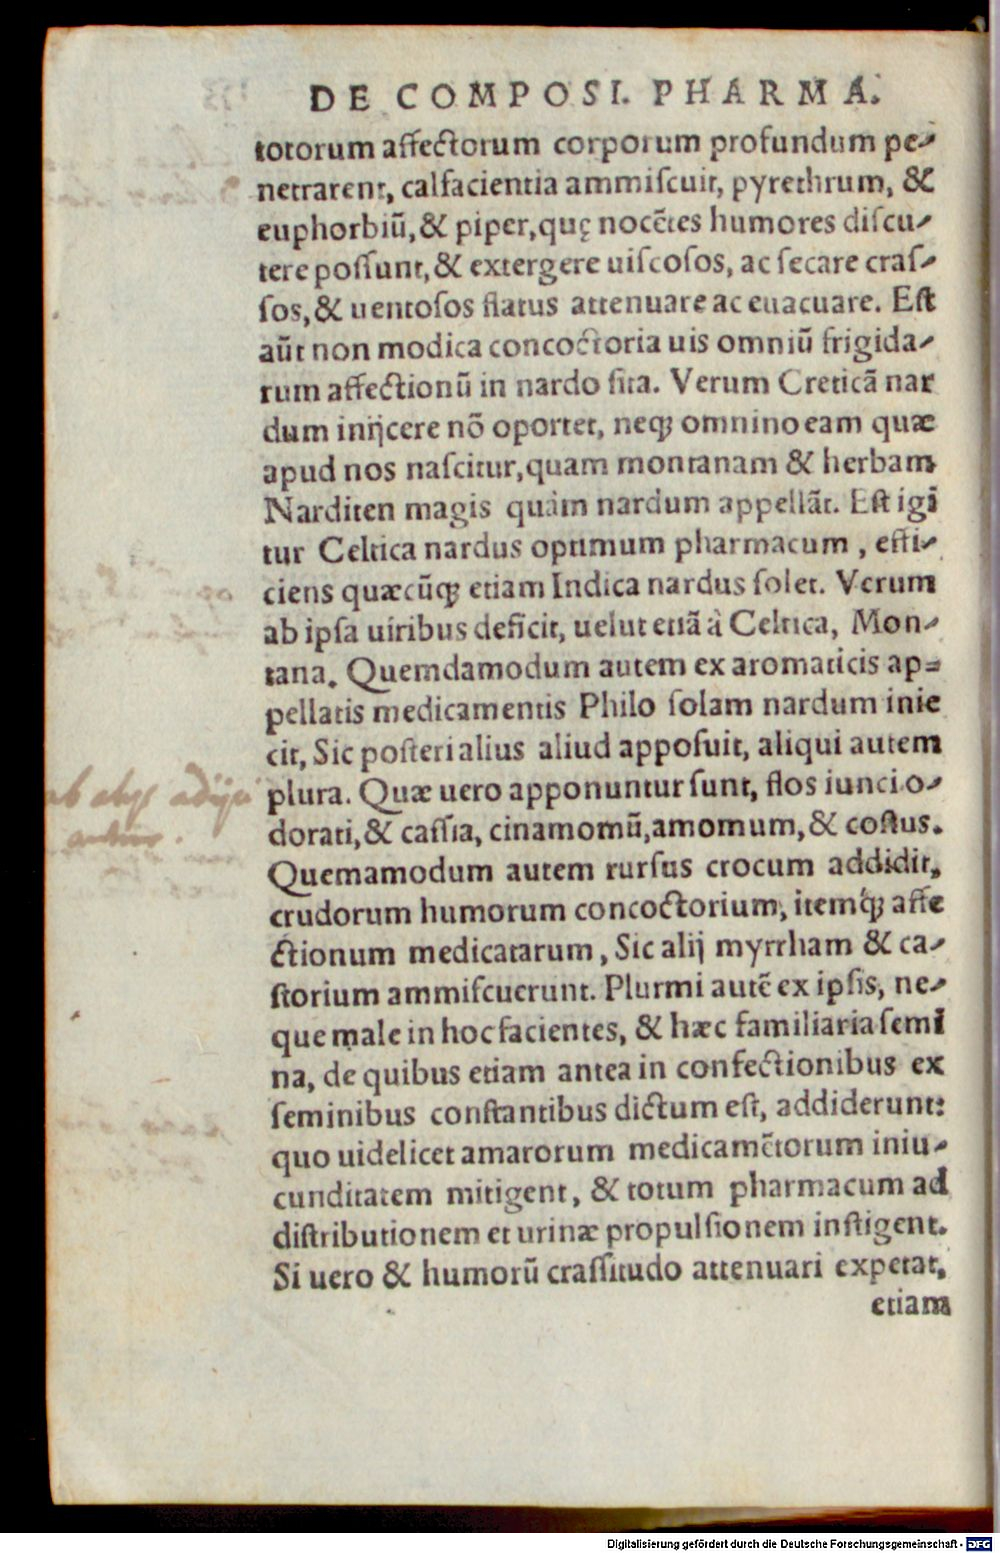 DE COMPOSI. PHARMA.
totorum affectorum corporum profundum pe-
netrarent, calfacientia ammiſcuit, pyrethrum, &
euphorbiũ, & piper, quę nocẽtes humores diſcu-
tere poſſunt, & extergere uiſcoſos, ac ſecare craſ-
ſos, & uentoſos flatus attenuare ac euacuare. Eſt
aũt non modica concoctoria uis omniũ frigida-
rum affectionũ in nardo ſita. Verum Creticã nar
dum inijcere nõ oportet, neqꝫ omnino eam quæ
apud nos naſcitur, quam montanam & herbam
Narditen magis quàm nardum appellãt. Eſt igi
tur Celtica nardus optimum pharmacum, effi-
ciens quæcũqꝫ etiam Indica nardus ſolet. Verum
ab ipſa uiribus deficit, uelut etiã à Celtica, Mon-
tana. Quemdamodum autem ex aromaticis ap-
pellatis medicamentis Philo ſolam nardum inie
cit, Sic poſteri alius aliud appoſuit, aliqui autem
plura. Quæ uero apponuntur ſunt, flos iunci o-
dorati, & caſſia, cinamomũ, amomum, & coſtus.
Quemamodum autem rurſus crocum addidit,
crudorum humorum concoctorium, itemq́ꝫ affe
ctionum medicatarum, Sic alij myrrham & ca-
ſtorium ammiſcuerunt. Plurmi autẽ ex ipſis, ne-
que male in hoc facientes, & hæc familiaria ſemi
na, de quibus etiam antea in confectionibus ex
ſeminibus conſtantibus dictum eſt, addiderunt:
quo uidelicet amarorum medicamẽtorum iniu-
cunditatem mitigent, & totum pharmacum ad
diſtributionem et urinæ propulſionem inſtigent.
Si uero & humorũ craſſitudo attenuari expetat,
etiam
Digitalisierung gefördert durch die Deutsche Forschungsgemeinschaft - DFG